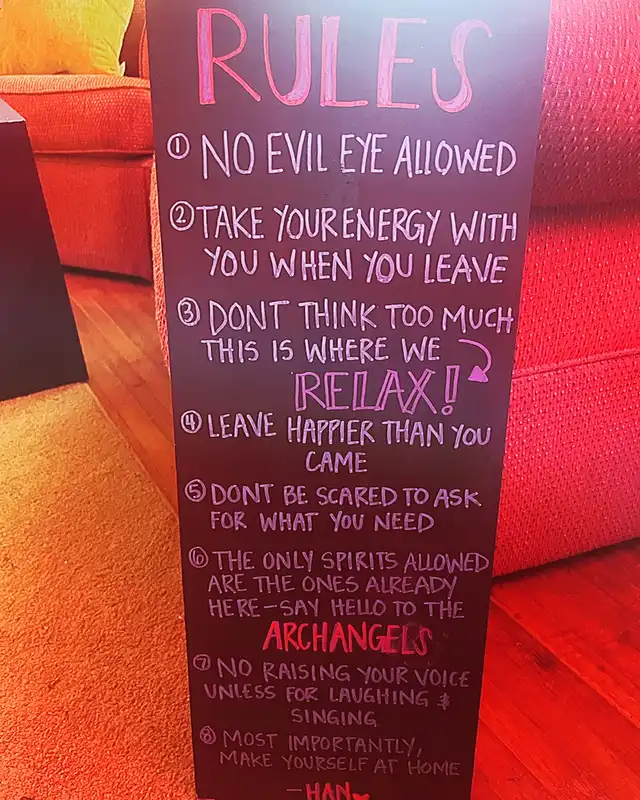 RULES
① NO EVIL EYE ALLOWED
② TAKE YOUR ENERGY WITH
YOU WHEN YOU LEAVE
③ DONT THINK TOO MUCH
THIS IS WHERE WE
RELAX!
④ LEAVE HAPPIER THAN YOU
CAME
⑤ DONT BE SCARED TO ASK
FOR WHAT YOU NEED
⑥ THE ONLY SPIRITS ALLOWED
ARE THE ONES ALREADY
HERE - SAY HELLO TO THE
ARCHANGELS
⑦ NO RAISING YOUR VOICE
UNLESS FOR LAUGHING &
SINGING
⑧ MOST IMPORTANTLY,
MAKE YOURSELF AT HOME
- HAN